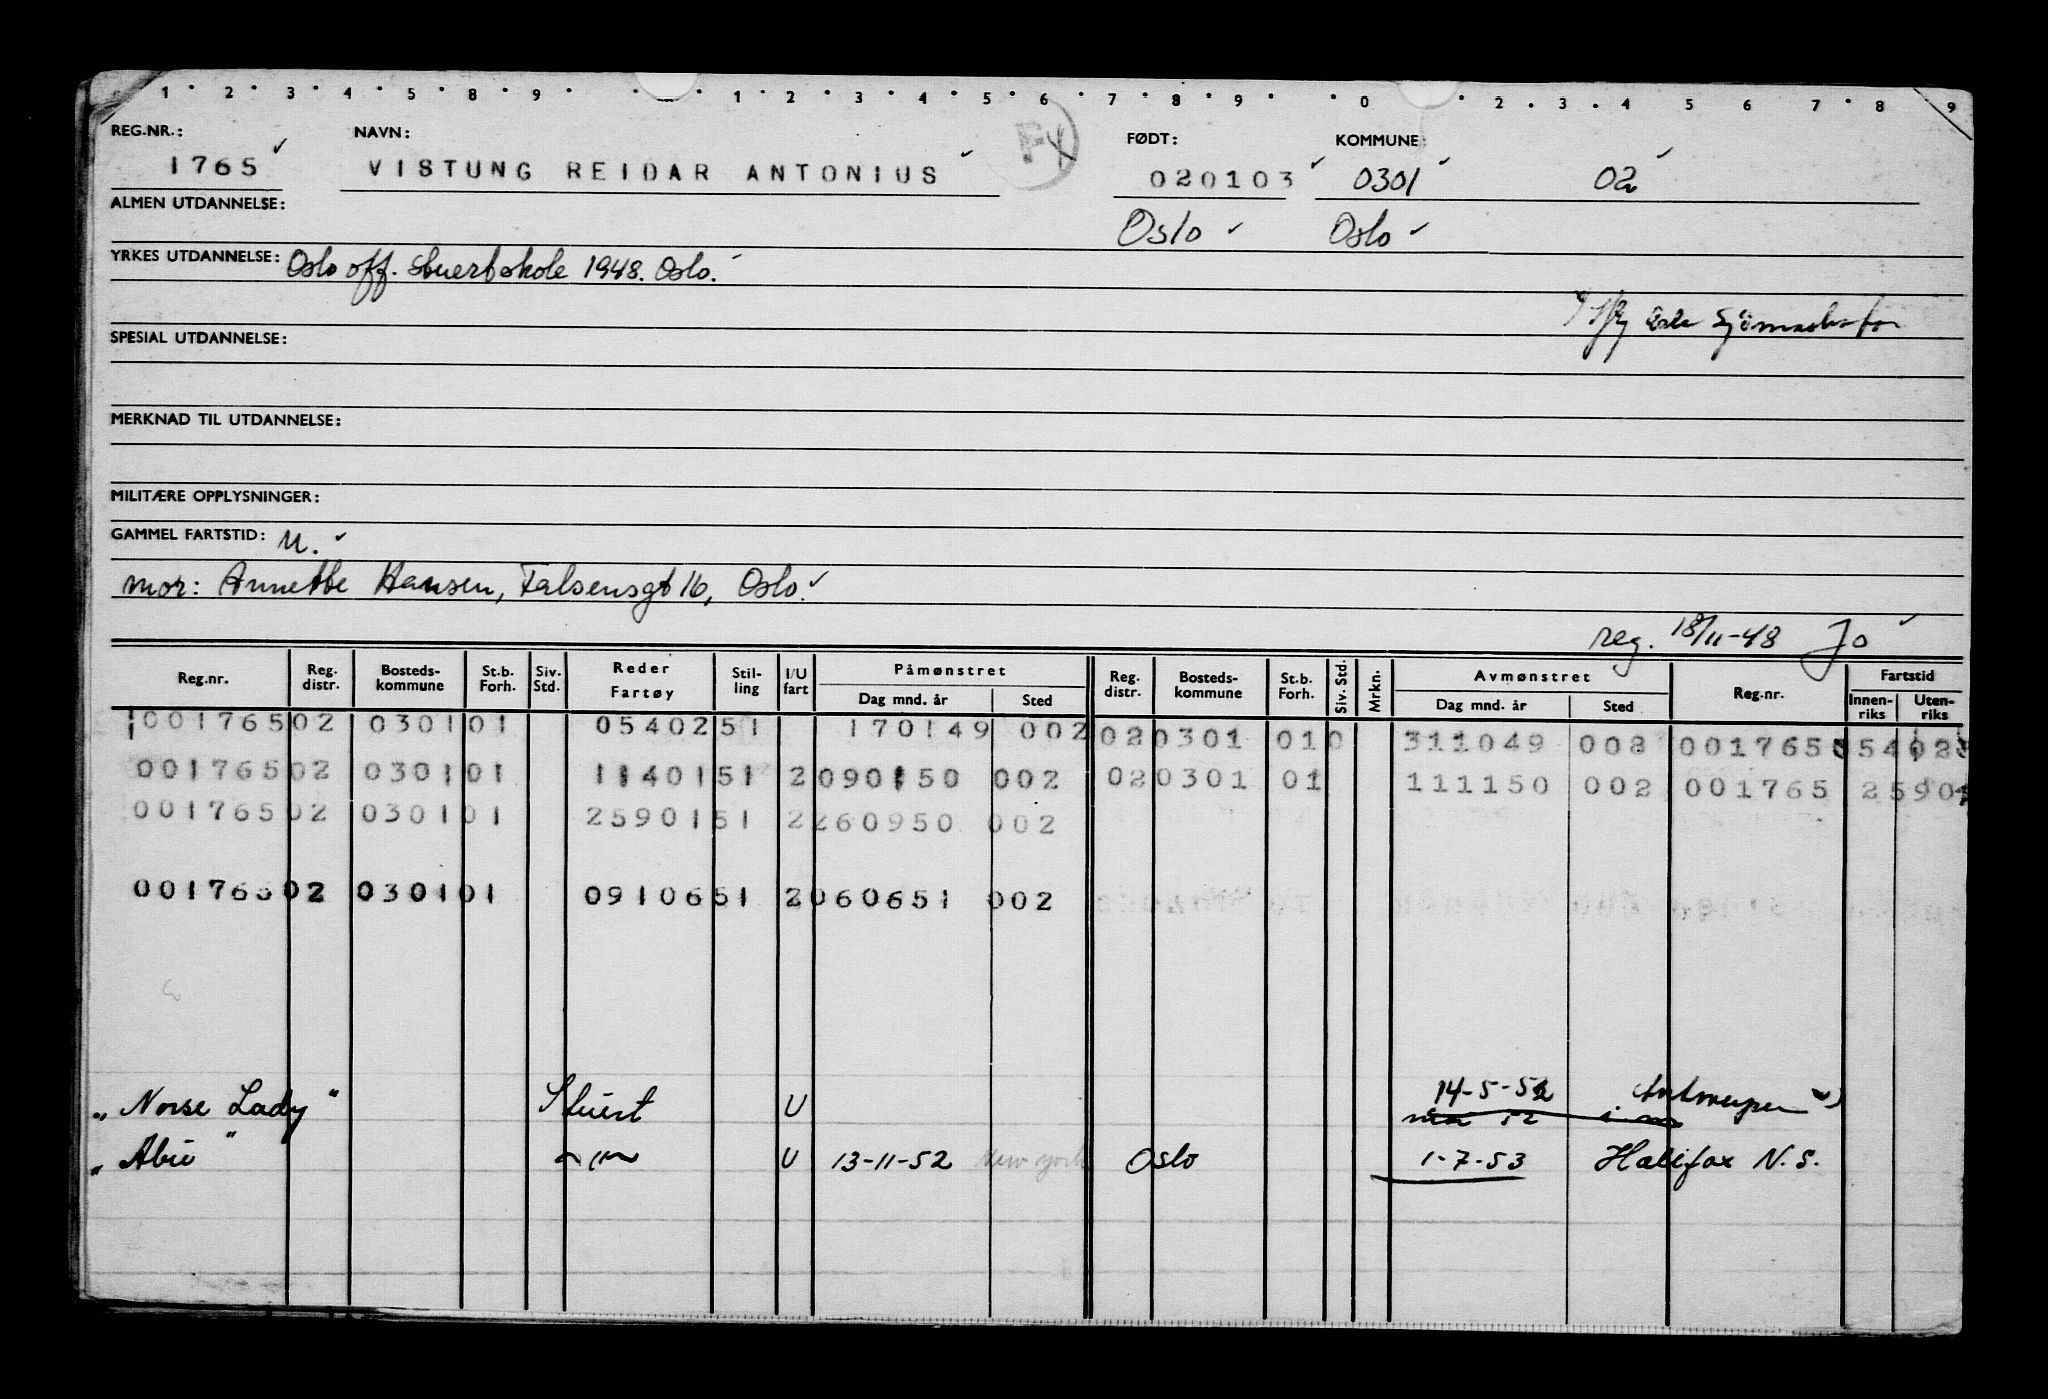 1 2 3 4 5 8 9 1 2 3 4 5 6 7 8 9 0 2 3 4 5 6 7 8 9
REG.NR.: NAVN: FØDT: KOMMUNE:
1765 VISTUNG REIDAR ANTONIUS 020103 0301 02
ALMEN UTDANNELSE: Oslo Oslo
YRKES UTDANNELSE: Oslo off. stuertskole 1948. Oslo.
SPESIAL UTDANNELSE:
MERKNAD TIL UTDANNELSE:
MILITÆRE OPPLYSNINGER:
GAMMEL FARTSTID: U.
mor: Annette Hansen, Falsensgt 16, Oslo.
reg. 18/11-48 Jo
Reg.nr. Reg. distr. Bosteds-kommune St.b. Forh. Siv. Std. Reder Fartøy Stil-ling I/U fart Påmønstret Dag mnd. år Sted Reg. distr. Bosteds-kommune St.b. Forh. Siv. Std. Mrkn. Avmønstret Dag mnd. år Sted Reg.nr. Fartstid Innen-riks Uten-riks
00176502 030101 0540251 170149 002 020301 010 311049 008 001765 5402
00176502 030101 1140151 2090150 002 020301 01 111150 002 001765 2590
00176502 030101 2590151 2260950 002
00176502 030101 0910651 2060651 002
"Norse Lady" Stuert U 14-5-52 Antwerpen
"Abu" -"- U 13-11-52 New York Oslo 1-7-53 Halifax N.S.